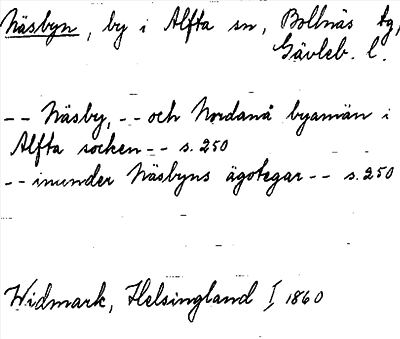 Näsbyn, by i Alfta sn, Bollnäs tg,
Gävleb. l.
-- Näsby, -- och Nordanå byamän i
Alfta socken -- s. 250
-- inunder Näsbyns ägotegar -- s. 250
Widmark, Helsingland I, 1860